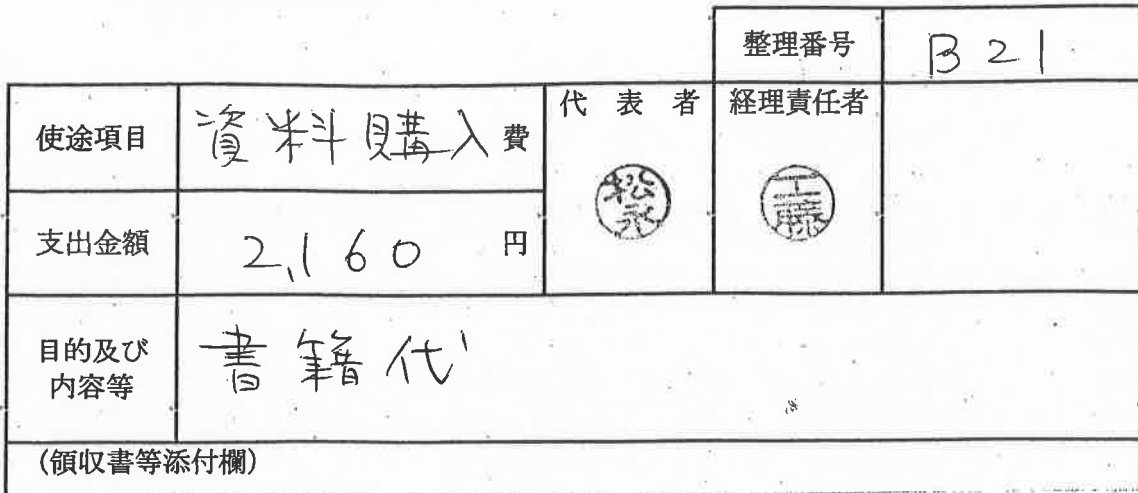 整理番号 B21
使途項目 資料購入費 代表者 経理責任者
松永 工藤
支出金額 2,160 円
目的及び内容等 書籍代
(領収書等添付欄)